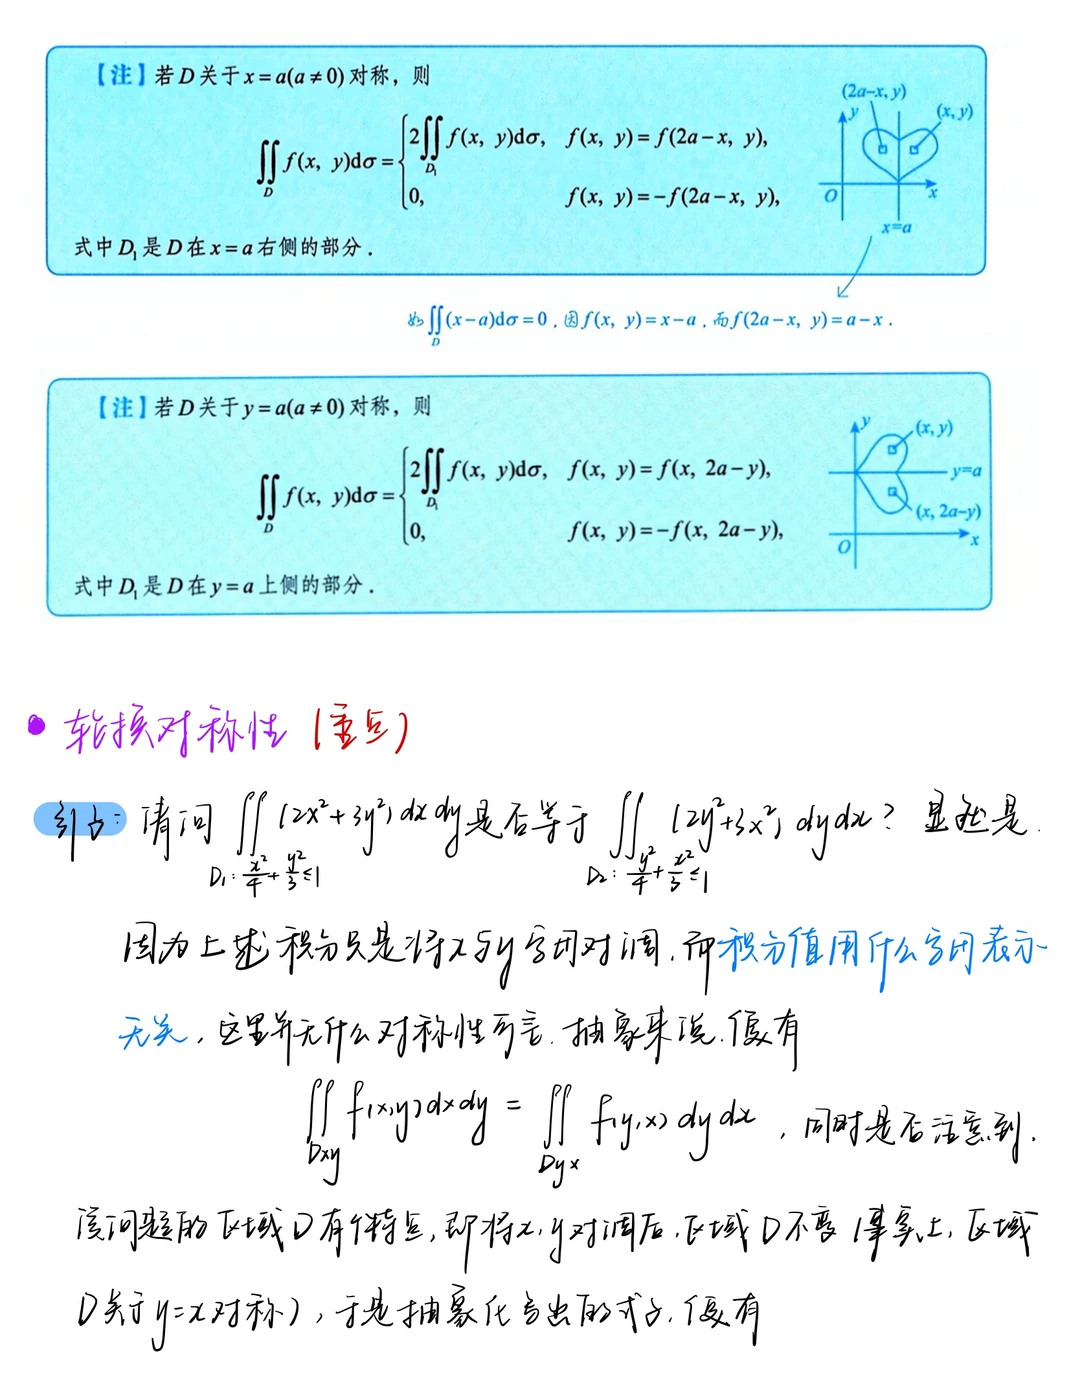 【注】若D关于x=a(a≠0)对称，则
∬_D f(x, y)dσ = { 2∬_{D₁} f(x, y)dσ, f(x, y)=f(2a-x, y),
0, f(x, y)=-f(2a-x, y),
式中D₁是D在x=a右侧的部分．
(2a-x, y)
y
(x, y)
O
x
x=a
如∬_D (x-a)dσ=0，因f(x, y)=x-a，而f(2a-x, y)=a-x．
【注】若D关于y=a(a≠0)对称，则
∬_D f(x, y)dσ = { 2∬_{D₁} f(x, y)dσ, f(x, y)=f(x, 2a-y),
0, f(x, y)=-f(x, 2a-y),
式中D₁是D在y=a上侧的部分．
y
(x, y)
y=a
(x, 2a-y)
O
x
• 轮换对称性（重点）
引占：请问 ∬_{D₁: x²/4+y²/3≤1} (2x²+3y²)dxdy是否等于 ∬_{D₂: y²/4+x²/3≤1} (2y²+3x²)dydx？显然是．
因为上述积分只是将x与y字母对调，而积分值用什么字母表示
无关，这里并无什么对称性可言．抽象来说，便有
∬_{Dxy} f(x,y)dxdy = ∬_{Dyx} f(y,x)dydx，同时是否注意到，
该问题的区域D有个特点，即将x，y对调后，区域D不变（事实上，区域
D关于y=x对称），于是抽象化写出的式子，便有